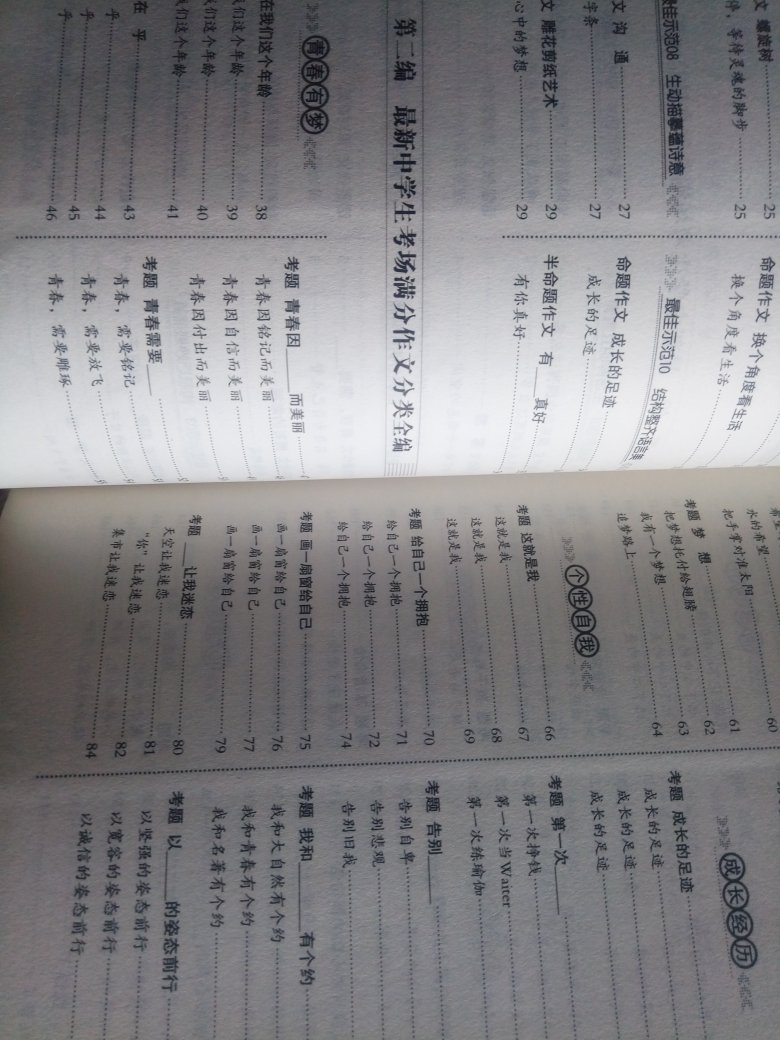 文 螺旋树
停，等待灵魂的脚步 25
25
最佳示范08 生动描摹蕴诗意
文 沟 通 27
字条 27
文 雕花剪纸艺术 29
心中的梦想 29
命题作文 换个角度看生活
换个角度看生活
最佳示范10 结构整齐语言
命题作文 成长的足迹
成长的足迹
半命题作文 有____真好
有你真好
第二编 最新中学生考场满分作文分类全编
青春有梦
在我们这个年龄 38
我们这个年龄 39
们这个年龄 40
们这个年龄 41
在 乎 43
乎 44
乎 45
乎 46
考题 青春因____而美丽
青春因铭记而美丽
青春因自信而美丽
青春因付出而美丽
考题 青春需要____
青春，需要铭记
青春，需要放飞
青春，需要雕琢
60
水的希望 61
把手掌对准太阳 62
考题 梦 想
把梦想托付给翅膀 63
我有一个梦想 64
追梦路上
个性自我
考题 这就是我 66
这就是我 67
这就是我 68
这就是我 69
考题 给自己一个拥抱 70
给自己一个拥抱 71
给自己一个拥抱 72
给自己一个拥抱 74
考题 画一扇窗给自己 75
画一扇窗给自己 76
画一扇窗给自己 77
画一扇窗给自己 79
考题 ____让我迷恋 80
天空让我迷恋 81
“你”让我迷恋 82
集市让我迷恋 84
成长经历
考题 成长的足迹
成长的足迹
成长的足迹
成长的足迹
考题 第一次____
第一次挣钱
第一次当Waiter
第一次练瑜伽
考题 告别____
告别自卑
告别悲观
告别旧我
考题 我和____有个约
我和大自然有个约
我和青春有个约
我和名著有个约
考题 以____的姿态前行
以坚强的姿态前行
以宽容的姿态前行
以诚信的姿态前行